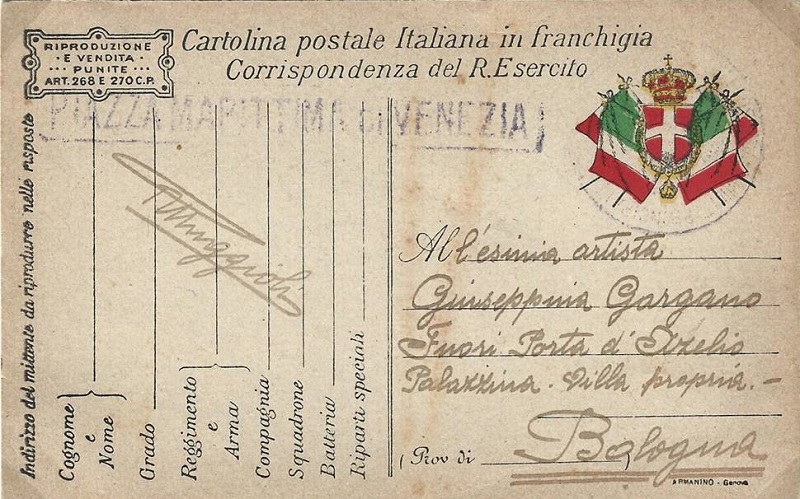 RIPRODUZIONE
· E VENDITA ·
··· PUNITE ···
ART. 268 E 270 C.P.
Cartolina postale Italiana in franchigia
Corrispondenza del R. Esercito
PIAZZA MARITTIMA di VENEZIA
Indirizzo del mittente da riprodurre nelle risposte
Cognome
e
Nome
Grado
Reggimento
e
Arma
Compagnia
Squadrone
Batteria
Riparti speciali
All'esimia artista
Giuseppina Gargano
Fuori Porta d'Azelio
Palazzina - Villa propria. -
(Prov di Bologna)
ARMANINO - Genova